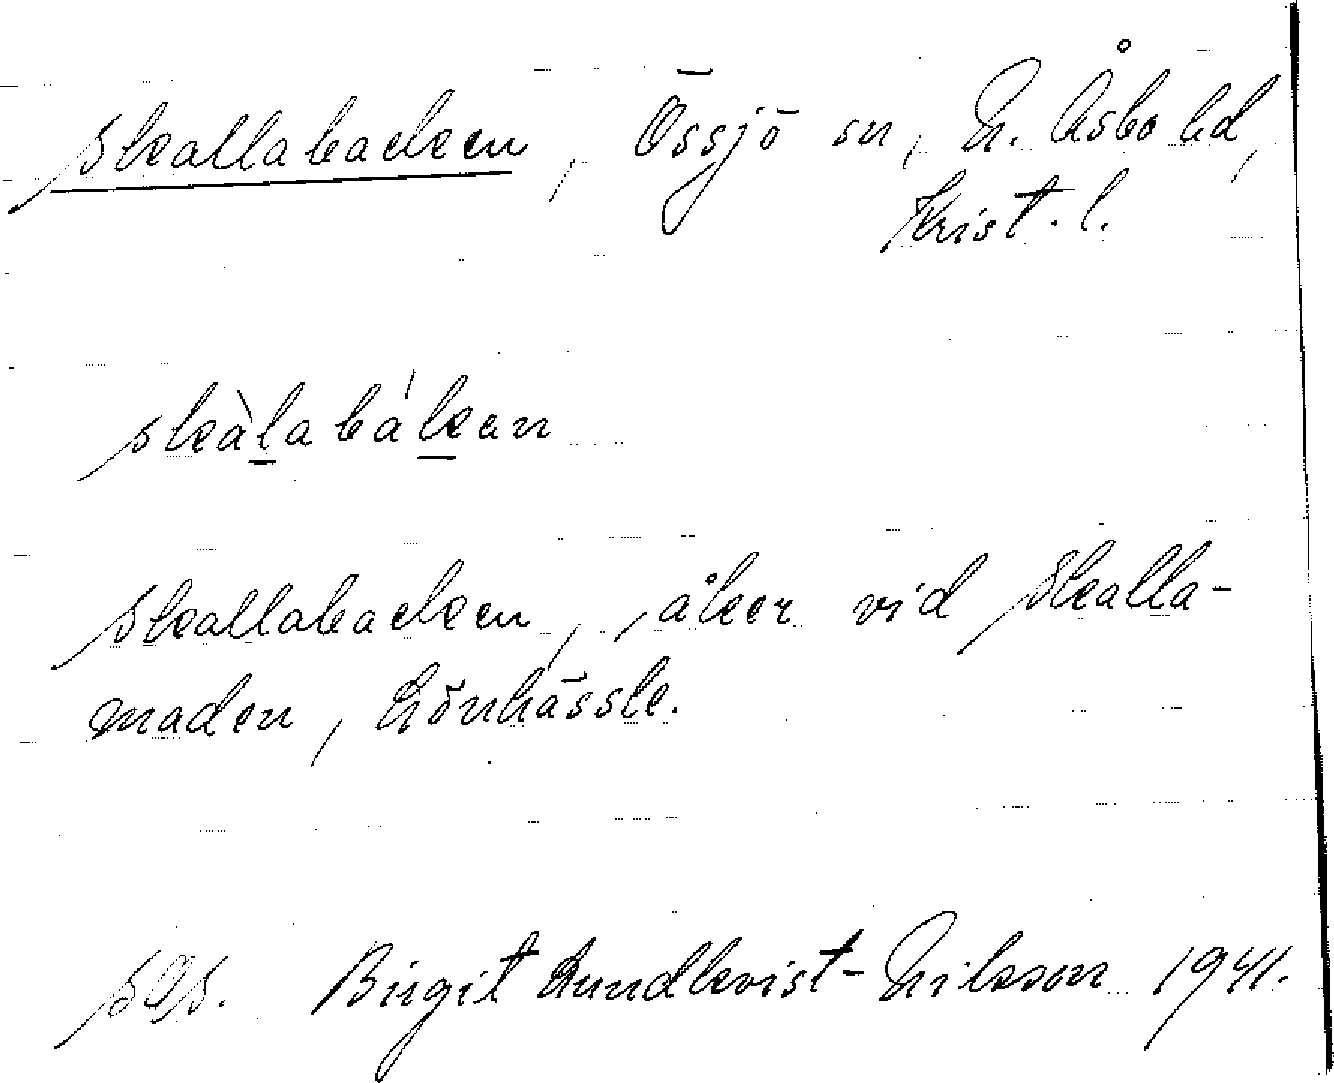 Skallabacken, Össjö sn, N. Åsbo hd,
Krist. l.
skàlabákan
Skallabacken, åker vid Skalla-
maden, Lönhässle.
Birgit Lundkvist-Nilsson 1941.